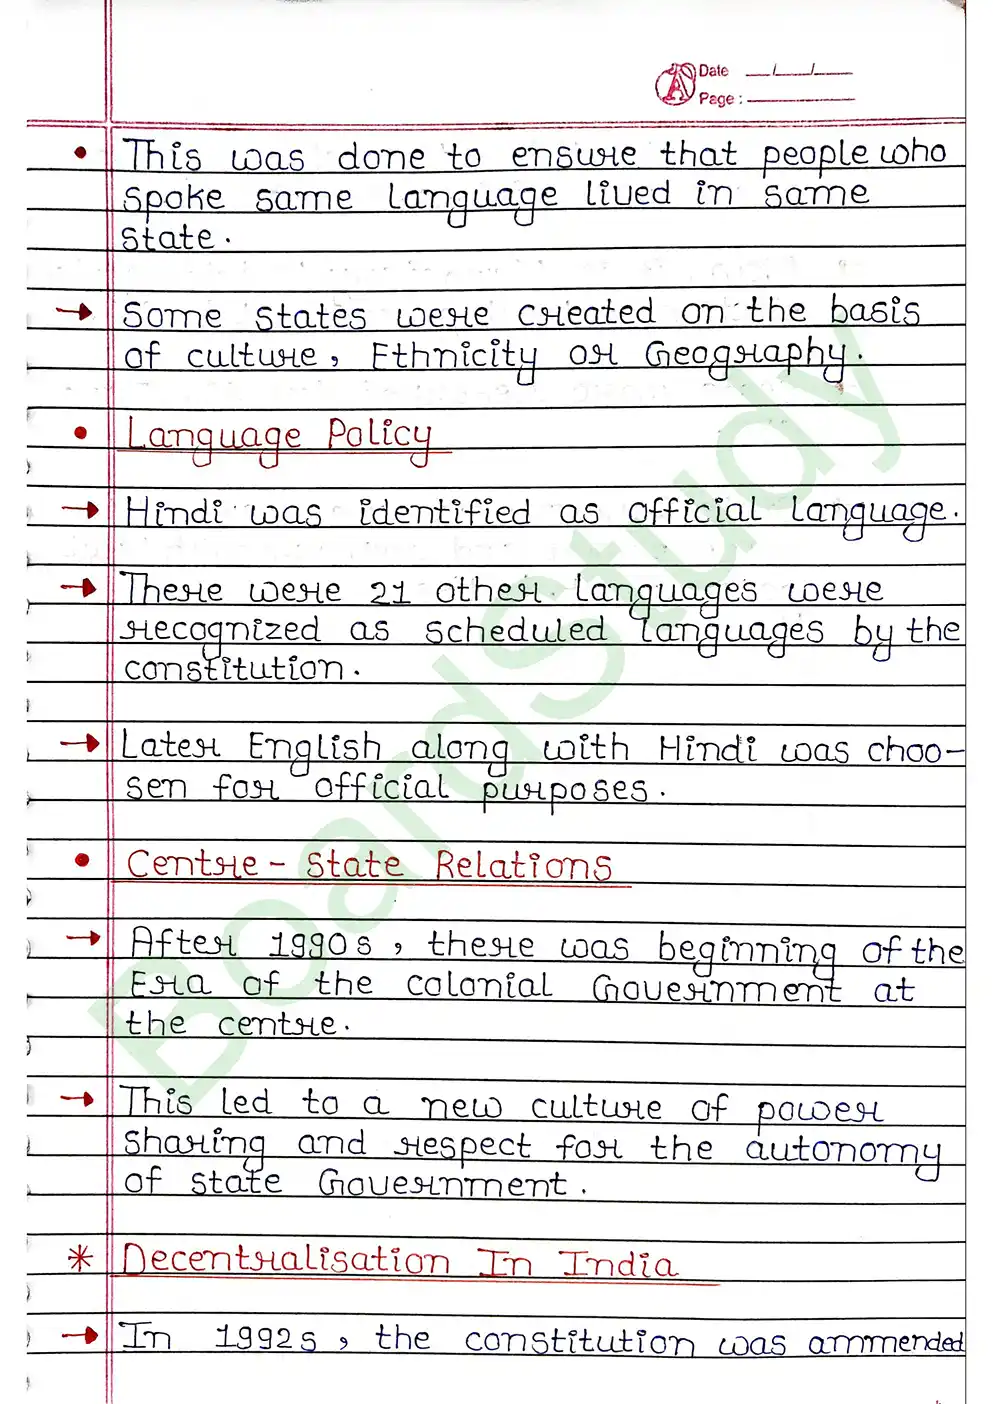 Date __/__/__
Page :
• This was done to ensure that people who
spoke same language lived in same
state.
→ Some states were created on the basis
of culture, Ethnicity or Geography.
• Language Policy
→ Hindi was identified as official language.
→ There were 21 other languages were
recognized as scheduled languages by the
constitution.
→ Later English along with Hindi was choo-
sen for official purposes.
• Centre - State Relations
→ After 1990s, there was beginning of the
Era of the colonial Government at
the centre.
→ This led to a new culture of power
sharing and respect for the autonomy
of state Government.
* Decentralisation In India
→ In 1992s, the constitution was ammended
BoardStudy